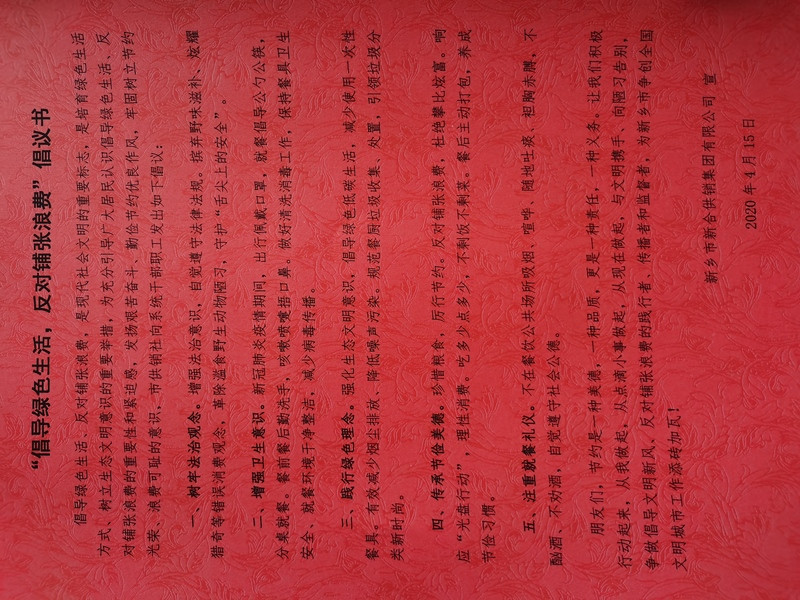 “倡导绿色生活，反对铺张浪费”倡议书
倡导绿色生活、反对铺张浪费，是现代社会文明的重要标志，是培育绿色生活
方式、树立生态文明意识的重要举措，为充分引导广大居民认识倡导绿色生活、反
对铺张浪费的重要性和紧迫感，发扬艰苦奋斗、勤俭节约优良作风，牢固树立节约
光荣、浪费可耻的意识，市供销社向系统干部职工发出如下倡议：
一、树牢法治观念。增强法治意识，自觉遵守法律法规。摈弃野味滋补、炫耀
猎奇等错误消费观念，革除滥食野生动物陋习，守护“舌尖上的安全”。
二、增强卫生意识。新冠肺炎疫情期间，出行佩戴口罩，就餐倡导公勺公筷，
分桌就餐。餐前餐后勤洗手，咳嗽喷嚏捂口鼻。做好清洗消毒工作，保持餐具卫生
安全、就餐环境干净整洁，减少病毒传播。
三、践行绿色理念。强化生态文明意识，倡导绿色低碳生活，减少使用一次性
餐具。有效减少烟尘排放、降低噪声污染。规范餐厨垃圾收集、处置，引领垃圾分
类新时尚。
四、传承节俭美德。珍惜粮食，厉行节约。反对铺张浪费，杜绝攀比炫富。响
应“光盘行动”，理性消费。吃多少点多少，不剩饭不剩菜。餐后主动打包，养成
节俭习惯。
五、注重就餐礼仪。不在餐饮公共场所吸烟、喧哗、随地吐痰、袒胸赤膊，不
酗酒、不劝酒，自觉遵守社会公德。
朋友们，节约是一种美德，一种品质，更是一种责任，一种义务。让我们积极
行动起来，从我做起，从点滴小事做起，从现在做起，与文明携手、向陋习告别，
争做倡导文明新风、反对铺张浪费的践行者、传播者和监督者，为新乡市争创全国
文明城市工作添砖加瓦！
新乡市新合供销集团有限公司 宣
2020 年 4 月 15 日